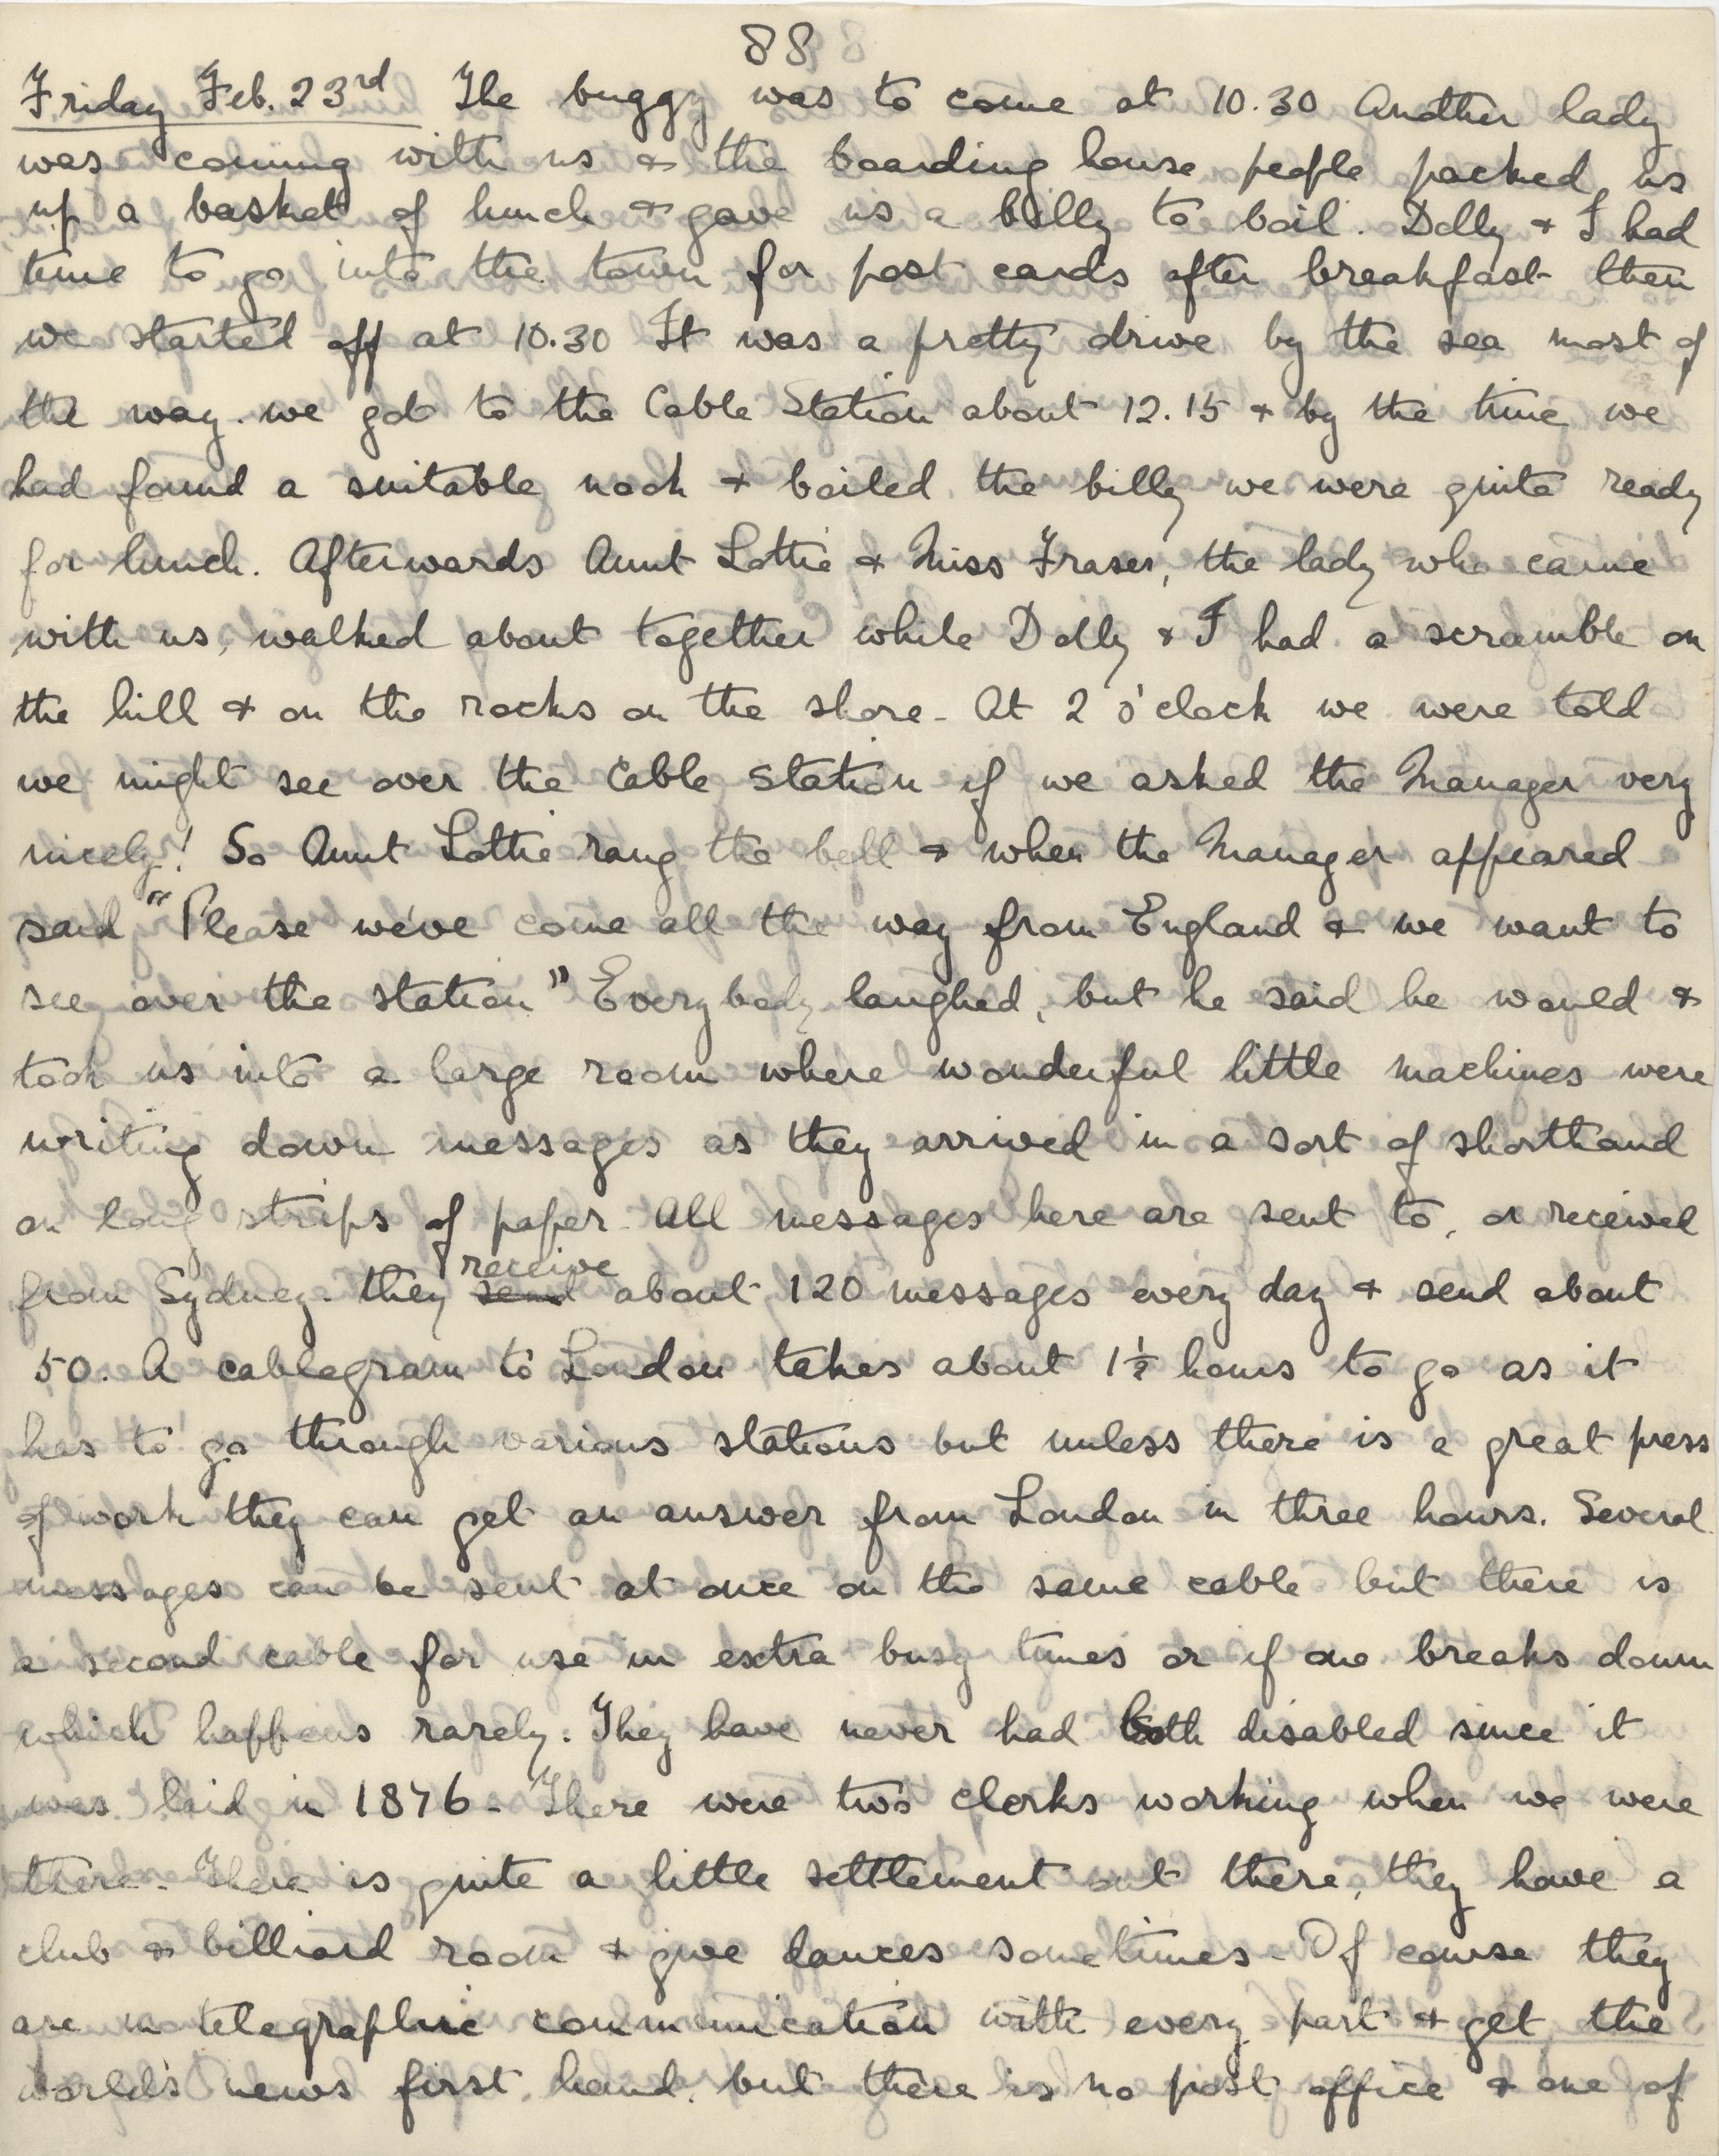 88
Friday Feb. 23rd The buggy was to come at 10.30 Another lady
was coming with us & the boarding house people packed us
up a basket of lunch & gave us a billy to boil. Dolly & I had
time to go into the town for post cards after breakfast then
we started off at 10.30 It was a pretty drive by the sea most of
the way. we got to the Cable Station about 12.15 & by the time we
had found a suitable nook & boiled the billy we were quite ready
for lunch. Afterwards Aunt Lottie & Miss Fraser, the lady who came
with us, walked about together while Dolly & I had a scramble on
the hill & on the rocks on the shore - At 2 o'clock we were told
we might see over the Cable Station if we asked the Manager very
nicely! So Aunt Lottie rang the bell & when the Manager appeared
said "Please we've come all the way from England & we want to
see over the station" Everybody laughed, but he said he would &
took us into a large room where wonderful little machines were
writing down messages as they arrived in a sort of shorthand
on long strips of paper. All messages here are sent to, or received
from Sydney. they send receive about 120 messages every day & send about
50. A cablegram to London takes about 1½ hours to go as it
has to go through various stations but unless there is a great press
of work they can get an answer from London in three hours. Several
messages can be sent at once on the same cable but there is
a second cable for use in extra busy times or if one breaks down
which happens rarely. They have never had both disabled since it
was laid in 1876 - There were two clerks working when we were
there - There is quite a little settlement out there, they have a
club & billiard room & give dances sometimes - Of course they
are in telegraphic communication with every part & get the
world's news first hand. but there is no post office & one of